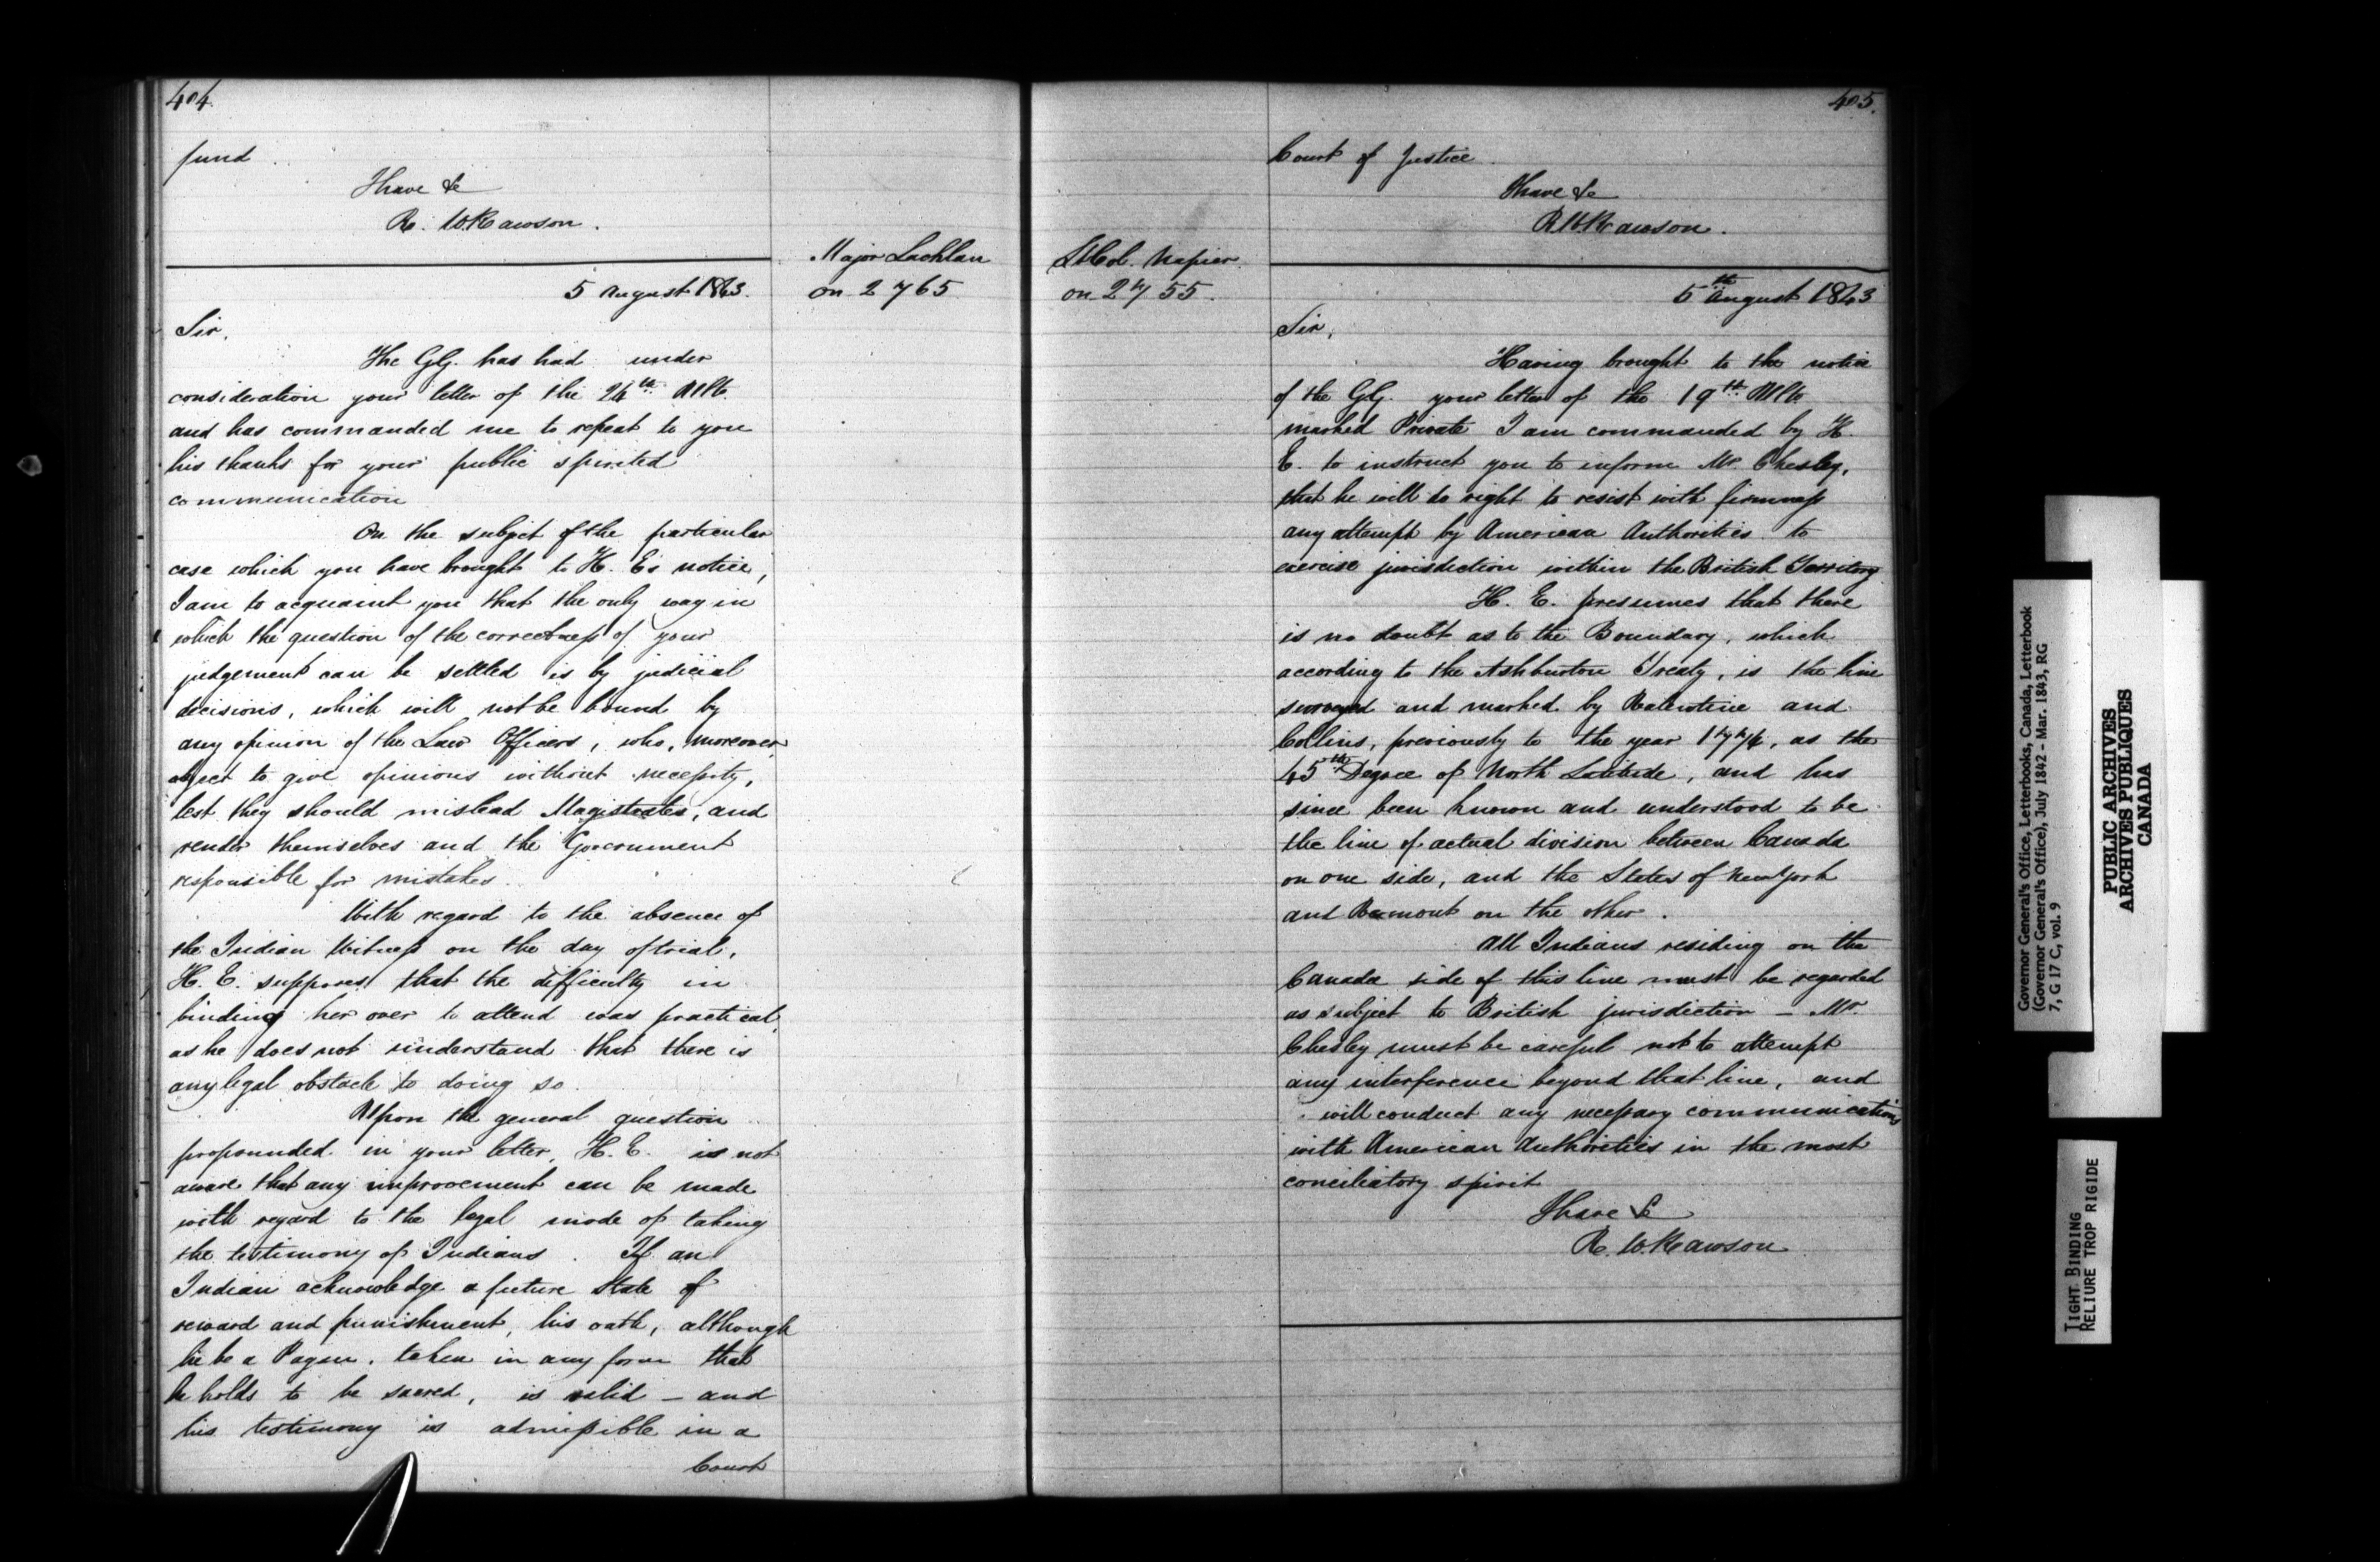 404.
fund.
I have &c
R. W. Rawson.
Major Lachlan
on 2765
5 August 1843.
Sir,
The GG. has had under
consideration your letter of the 24th Ulto.
and has commanded me to repeat to you
his thanks for your public spirited
communication
On the subject of the particular
case which you have brought to H. Es notice,
I am to acquaint you that the only way in
which the question of the correctness of your
judgement can be settled is by judicial
decisions, which will not be bound by
any opinion of the Law Officers, who, moreover,
object to give opinions without necessity,
lest they should mislead Magistrates, and
render themselves and the Government
responsible for mistakes.
With regard to the absence of
the Indian Witness on the day of trial,
H. E. supposes that the difficulty in
binding her over to attend was practical,
as he does not understand that there is
any legal obstacle to doing so.
Upon the general question
propounded in your letter, H. E. is not
aware that any improvement can be made
with regard to the legal mode of taking
the testimony of Indians. If an
Indian acknowledge a future State of
reward and punishment, his oath, although
he be a Pagan, taken in any form that
he holds to be sacred, is valid – and
his testimony is admissible in a
Court
405.
Court of Justice.
I have &c
R W. Rawson.
Lt Col. Napier.
on 2755.
5th August 1843
Sir,
Having brought to the notice
of the GG. your letter of the 19th Ulto.
marked Private I am commanded by H.
E. to instruct you to inform Mr Chesley,
that he will do right to resist with firmness
any attempt by American Authorities to
exercise jurisdiction within the British Territory
H. E. presumes that there
is no doubt as to the Boundary, which
according to the Ashburton Treaty, is the line
surveyed and marked by Valentine and
Collins, previously to the year 1774, as the
45th Degree of North Latitude, and has
since been known and understood to be
the line of actual division between Canada
on one side, and the States of New York
and Vermont on the other.
All Indians residing on the
Canada side of this line must be regarded
as subject to British jurisdiction – Mr.
Chesley must be careful not to attempt
any interference beyond that line, and
will conduct any necessary communications
with American Authorities in the most
conciliatory spirit
I have &c
R. W. Rawson
Governor General's Office, Letterbooks, Canada, Letterbook
(Governor General's Office), July 1842 - Mar. 1843, RG
7, G 17 C, vol. 9
PUBLIC ARCHIVES
ARCHIVES PUBLIQUES
CANADA
TIGHT BINDING
RELIURE TROP RIGIDE